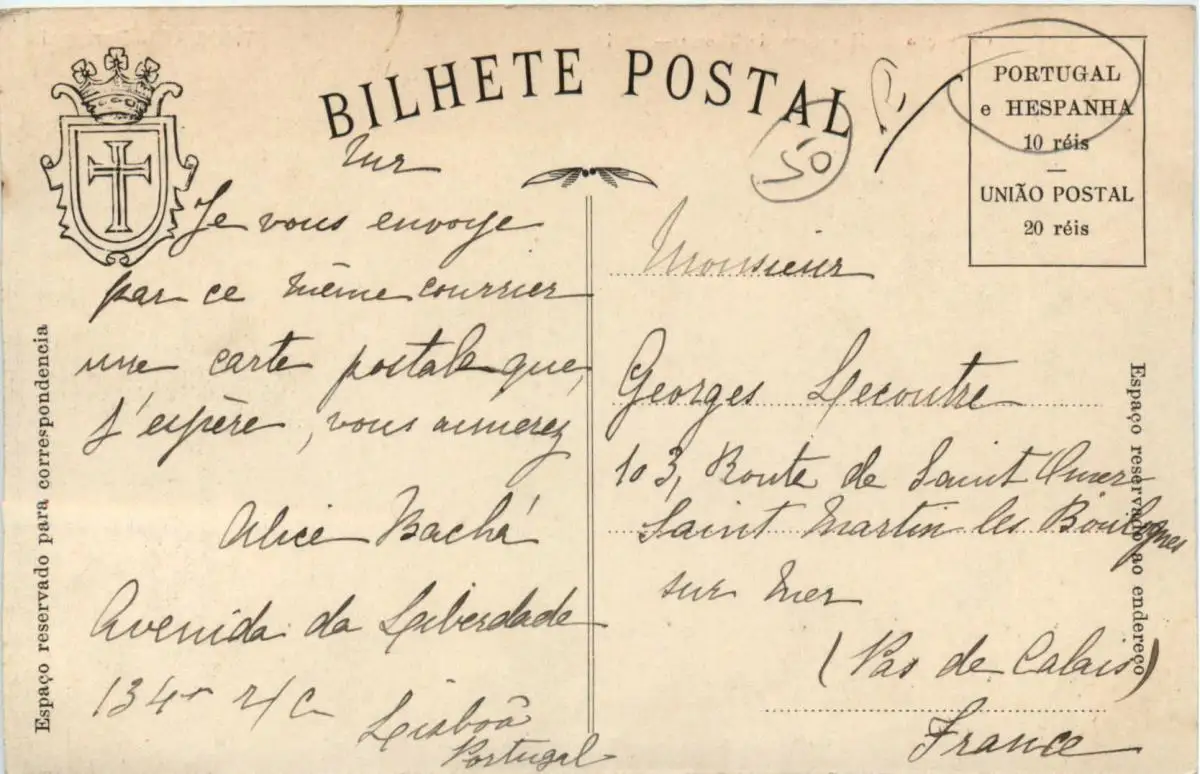 BILHETE POSTAL
PORTUGAL
e HESPANHA
10 réis
UNIÃO POSTAL
20 réis
50
Espaço reservado para correspondencia
Je vous envoye
par ce même courrier
une carte postale que,
j'espère, vous aimerez
Alice Bachá
Avenida da Liberdade
134 r/c
Lisboâ
Portugal
Monsieur
Georges Lecoutre
103, Route de Saint Omer
Saint Martin les Boulognes
sur Mer
(Pas de Calais)
France
Espaço reservado ao endereço